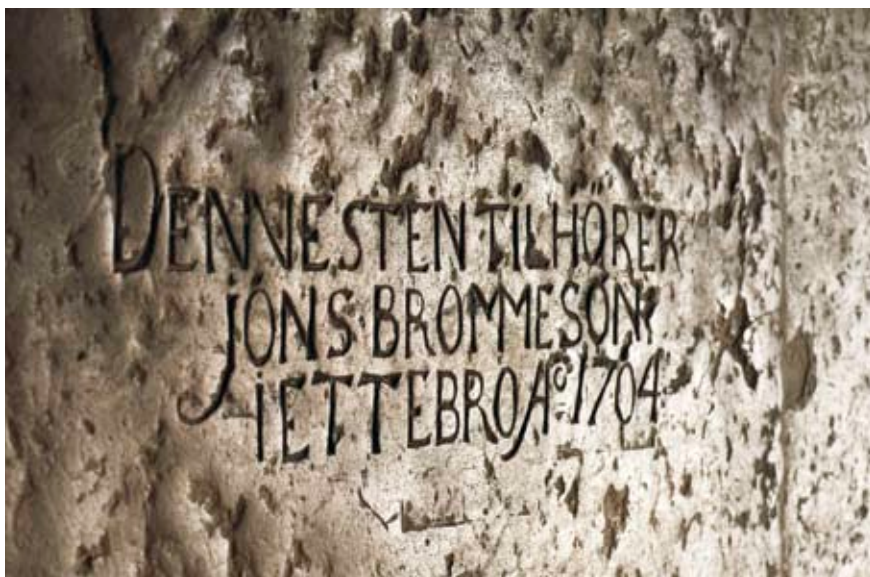 DENNE STEN TILHÖRER
JÖNS BROMMESON
IETTEBRO Aº 1704